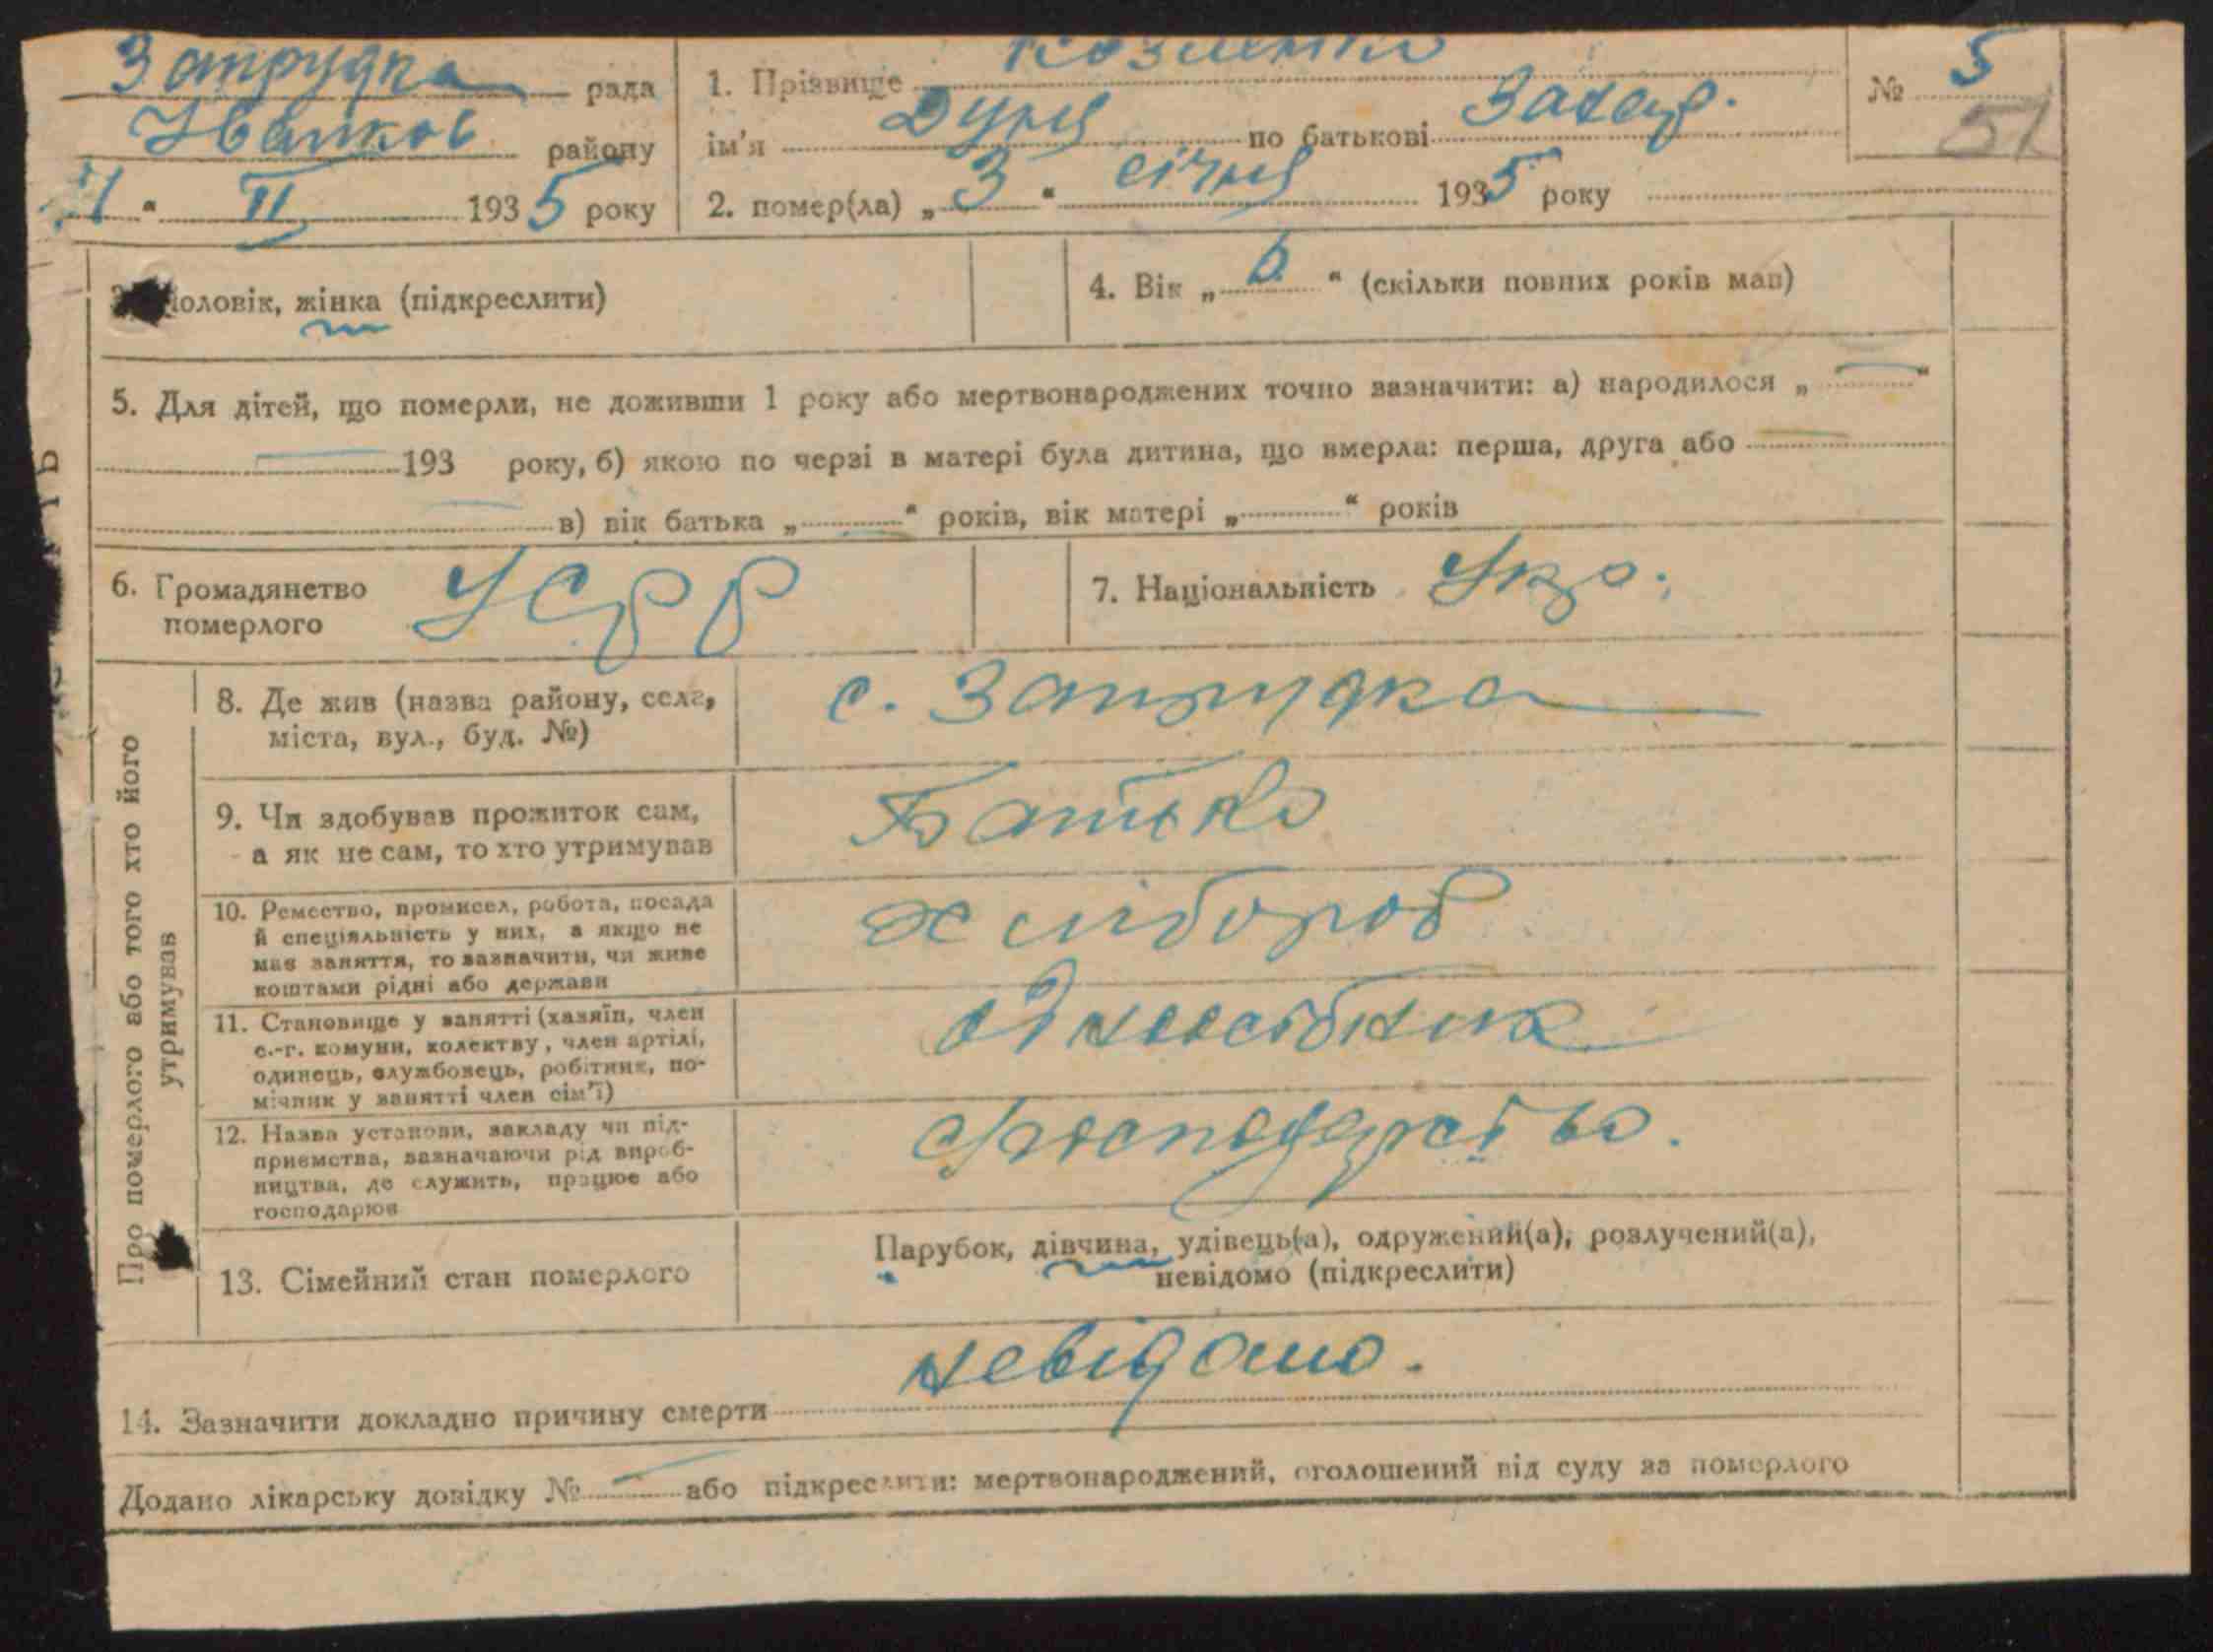 Запрудка рада
Иванков району
1 " II 1935 року
1. Прізвище
ім'я Дуня по батькові Захар.
2. помер(ла) „ 3 " січня 1935 року
№ 5
51
чоловік, жінка (підкреслити)
4. Вік „ 6 " (скільки повних років мав)
5. Для дітей, що померли, не доживши 1 року або мертвонароджених точно зазначити: а) народилося „ — "
— 193 року, б) якою по черзі в матері була дитина, що вмерла: перша, друга або —
в) вік батька „ — " років, вік матері „ " років
6. Громадянство
померлого
УСРР
7. Національність Укр.
Про померлого або того хто його
утримував
8. Де жив (назва району, села,
міста, вул., буд. №)
с. Запрудка
9. Чи здобував прожиток сам,
а як не сам, то хто утримував
Батько
10. Ремество, промисел, робота, посада
й спеціяльність у них, а якщо не
мав заняття, то зазначити, чи живе
коштами рідні або держави
хлібороб
11. Становище у занятті (хазяїн, член
с.-г. комуни, колективу, член артілі,
одинець, службовець, робітник, по-
мічник у занятті член сім'ї)
одноосібник
12. Назва установи, закладу чи під-
приємства, зазначаючи рід вироб-
ництва, де служить, працює або
господарює
с/господарство.
13. Сімейний стан померлого
Парубок, дівчина, удівець(а), одружений(а), розлучений(а),
невідомо (підкреслити)
14. Зазначити докладно причину смерти невідомо.
Додано лікарську довідку № — або підкреслити: мертвонароджений, оголошений від суду за померлого